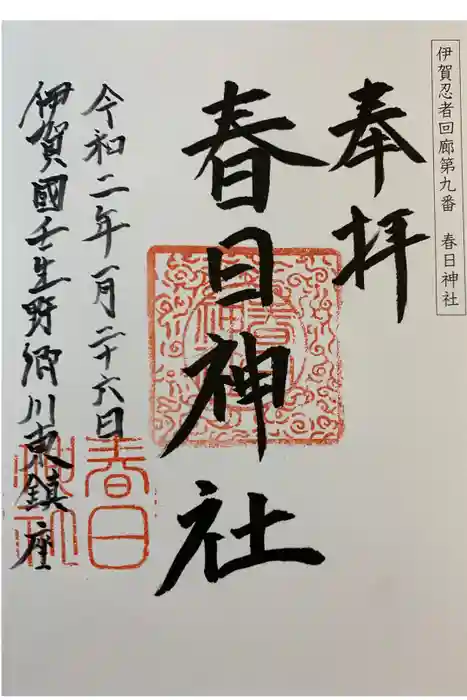 伊賀忍者回廊第九番 春日神社
奉拝
春日神社
令和二年一月二十六日
伊賀國壬生野郷川東鎮座
春日
神社